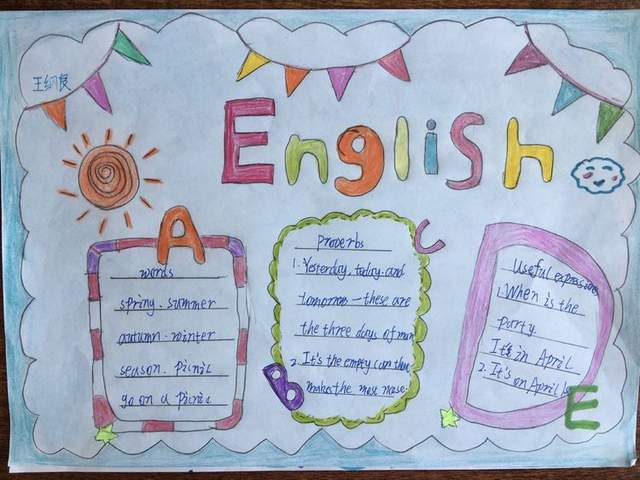 王纲良
English
A
words
spring. summer
autumn. winter
season. picnic
go on a picnic
B
C
Proverbs
1. Yesterday, today and
tomorrow – these are
the three days of man
2. It's the empty can that
makes the most noise.
Useful expressions
1. When is the
party.
It's in April
2. It's on April
E